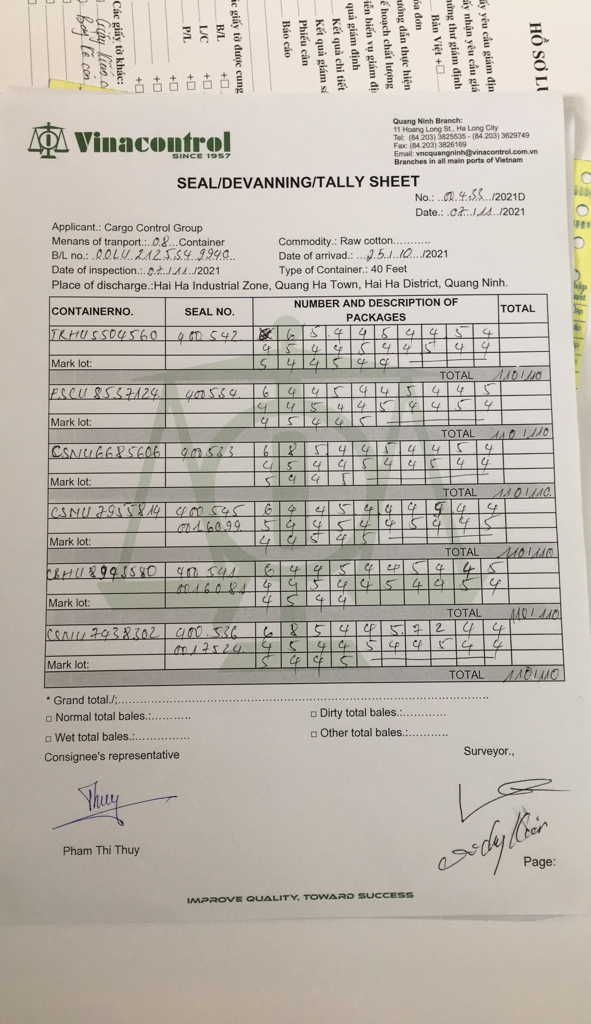 HỒ SƠ LƯ
Bản Việt +
Phiếu cân
Báo cáo
B/L +
L/C +
P/L +
Các giấy tờ khác:
Vinacontrol
SINCE 1957
Quang Ninh Branch:
11 Hoang Long St., Ha Long City
Tel: (84.203) 3825535 - (84.203) 3629749
Fax: (84.203) 3826169
Email: vncquangninh@vinacontrol.com.vn
Branches in all main ports of Vietnam
SEAL/DEVANNING/TALLY SHEET
No.: 00455/2021D
Date.: 07/11/2021
Applicant.: Cargo Control Group
Menans of tranport.: 08 Container Commodity.: Raw cotton
B/L no.: OOLU 212554 9940 Date of arrivad.: 25/10/2021
Date of inspection.: 07/11/2021 Type of Container.: 40 Feet
Place of discharge.: Hai Ha Industrial Zone, Quang Ha Town, Hai Ha District, Quang Ninh.
CONTAINERNO. SEAL NO. NUMBER AND DESCRIPTION OF PACKAGES TOTAL
TRHU5504560 400542 6 5 4 4 5 4 4 5 4
4 5 4 4 5 4 4 5 4 4
Mark lot: 5 4 4 5 4 4
TOTAL 110/110
FSCU 8537124 400534 6 4 4 5 4 4 5 4 4 5
4 4 5 4 4 5 4 4 5 4
Mark lot: 4 5 4 4 5
TOTAL 110/110
CSNU6685606 400533 6 8 5 4 4 5 4 4 5 4
4 5 4 4 5 4 4 5 4 4
Mark lot: 5 4 4 5
TOTAL 110/110
CSNU 7955814 400545 6 4 4 5 4 4 4 9 4 4
0016099 5 4 4 5 4 4 5 4 4 5
Mark lot: 4 4 5 4 5
TOTAL 110/110
CBHU8993580 400541 6 4 4 5 4 4 5 4 4 5
0016081 4 4 5 4 4 5 4 4 5 4
Mark lot: 4 5 4 4
TOTAL 110/110
CSNU7438302 400.536 6 8 5 4 4 5 7 2 4 4
0017524 4 5 4 4 5 4 4 5 4 4
Mark lot: 5 4 4 5
TOTAL 110/110
* Grand total./;
□ Normal total bales.: □ Dirty total bales.:
□ Wet total bales.: □ Other total bales.:
Consignee's representative Surveyor.,
Thuy
Pham Thi Thuy
Page:
IMPROVE QUALITY, TOWARD SUCCESS